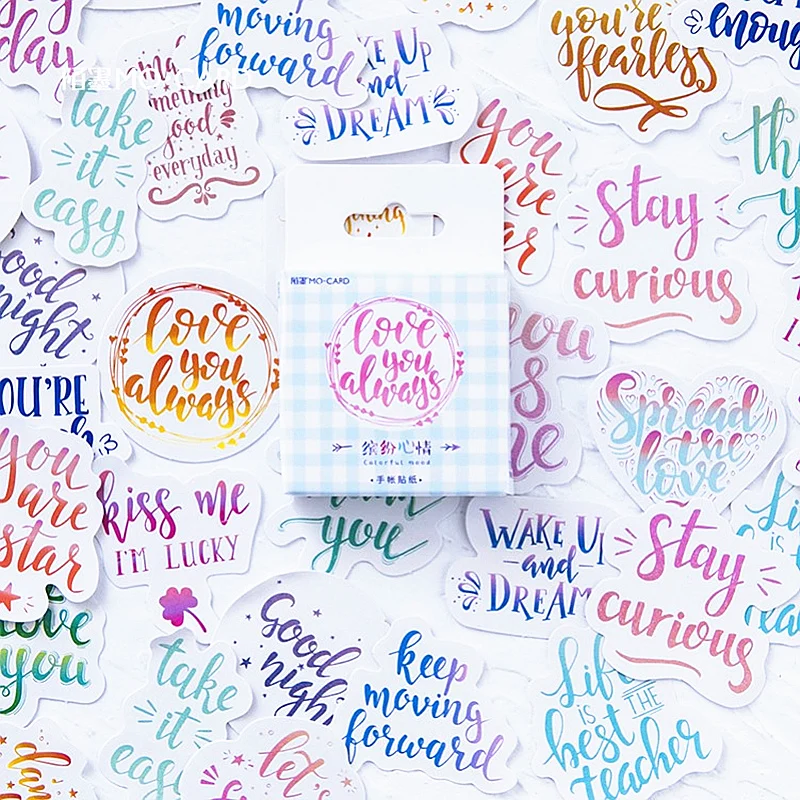 day
moving
forward
WAKE UP
and
DREAM
you're
fearless
enough
陌墨MO·CARD
take
it
easy
something
good
everyday
you
are
Stay
curious
good
night.
love
you
always
陌墨MO·CARD
love
you
always
缤纷心情
Colorful mood
·手帐贴纸·
you
Spread
the
love
YOU'RE
you
are
star
kiss me
I'M LUCKY
you
WAKE UP
and
DREAM
Stay
curious
love
you
Good
night
take
it
easy
keep
moving
forward
Life
IS THE
best
teacher
let's